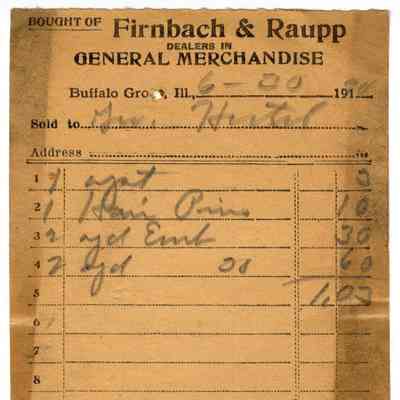 BOUGHT OF Firnbach & Raupp
DEALERS IN
GENERAL MERCHANDISE
Buffalo Grove, Ill., 6-20 191
Sold to Hertel
Address
1 1 3
2 1 Hair Pins 10
3 2 yd Emb 30
4 2 yd 60
5 1.03
6
7
8